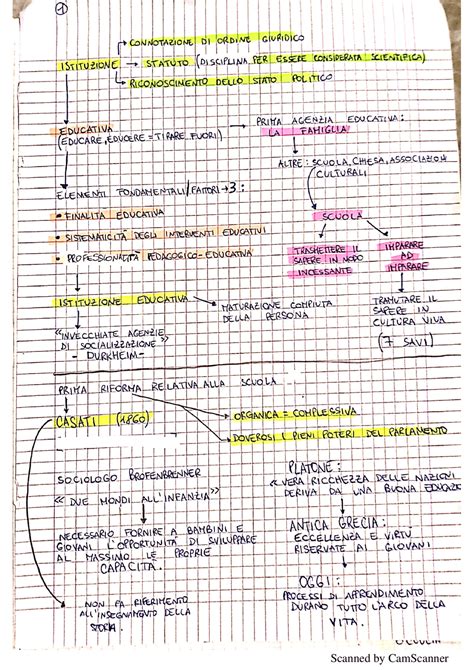 1
CONNOTAZIONE DI ORDINE GIURIDICO
ISTITUZIONE → STATUTO (DISCIPLINA PER ESSERE CONSIDERATA SCIENTIFICA)
RICONOSCIMENTO DELLO STATO POLITICO
EDUCATIVA
(EDUCARE, EDUCERE = TIRARE FUORI)
PRIMA AGENZIA EDUCATIVA:
LA FAMIGLIA
ALTRE: SCUOLA, CHIESA, ASSOCIAZIONI
CULTURALI
ELEMENTI FONDAMENTALI/FATTORI → 3:
• FINALITÀ EDUCATIVA
• SISTEMATICITÀ DEGLI INTERVENTI EDUCATIVI
• PROFESSIONALITÀ PEDAGOGICO-EDUCATIVA
SCUOLA
TRASMETTERE IL
SAPERE IN MODO
INCESSANTE
IMPARARE
AD
IMPARARE
ISTITUZIONE EDUCATIVA
MATURAZIONE COMPIUTA
DELLA PERSONA
TRAMUTARE IL
SAPERE IN
CULTURA VIVA
(7 SAVI)
"INVECCHIATE AGENZIE
DI SOCIALIZZAZIONE"
- DURKHEIM -
PRIMA RIFORMA RELATIVA ALLA SCUOLA
CASATI (1860)
ORGANICA = COMPLESSIVA
DOVEROSI I PIENI POTERI DEL PARLAMENTO
SOCIOLOGO BROFENBRENNER
"DUE MONDI ALL'INFANZIA"
NECESSARIO FORNIRE A BAMBINI E
GIOVANI L'OPPORTUNITÀ DI SVILUPPARE
AL MASSIMO LE PROPRIE
CAPACITÀ.
NON FA RIFERIMENTO
ALL'INSEGNAMENTO DELLA
STORIA.
PLATONE:
"VERA RICCHEZZA DELLE NAZIONI
DERIVA DA UNA BUONA
ANTICA GRECIA:
ECCELLENZA E VIRTÙ
RISERVATE AI GIOVANI
OGGI:
PROCESSI DI APPRENDIMENTO
DURANO TUTTO L'ARCO DELLA
VITA.
Scanned by CamScanner